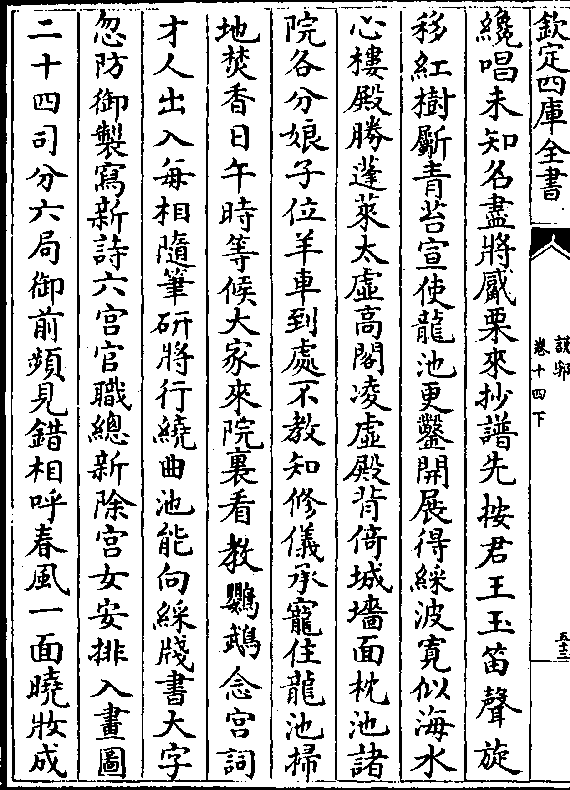 欽定四庫全書
說郛
卷十四下
五十三
纔唱未知名盡將觱栗來抄譜先按君王玉笛聲旋
移紅樹斸青苔宣使龍池更鑿開展得綵波寛似海水
心樓殿勝蓬萊太虛高閣凌虛殿背倚城墻面枕池諸
院各分娘子位羊車到處不教知修儀承寵住龍池掃
地焚香日午時等候大家來院裏看教鸚鵡念宫詞
才人出入每相隨筆硏將行繞曲池能向綵牋書大字
忽防御製寫新詩六宫官職總新除宫女安排入畫圖
二十四司分六局御前頻見錯相呼春風一面曉妝成